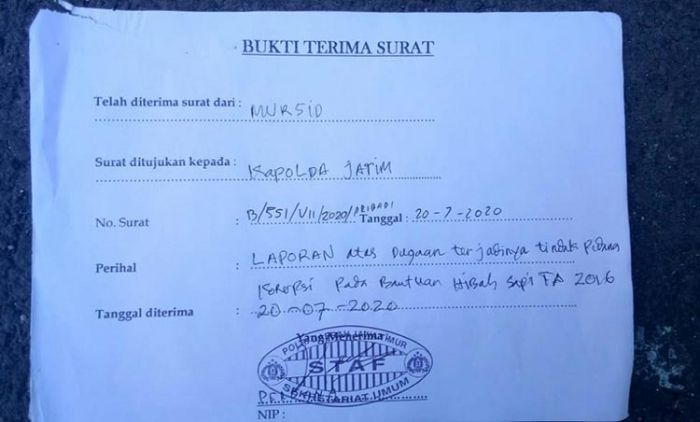 BUKTI TERIMA SURAT
Telah diterima surat dari : MURSID
Surat ditujukan kepada : KAPOLDA JATIM
No. Surat : B/551/VII/2020/PRIBADI Tanggal : 20-7-2020
Perihal : LAPORAN atas Dugaan terjadinya tindak Pidana
Korupsi Pada Bantuan Hibah Sapi TA 2016
Tanggal diterima : 20-07-2020
Yang Menerima
STAF
SEKRETARIAT UMUM
NIP :